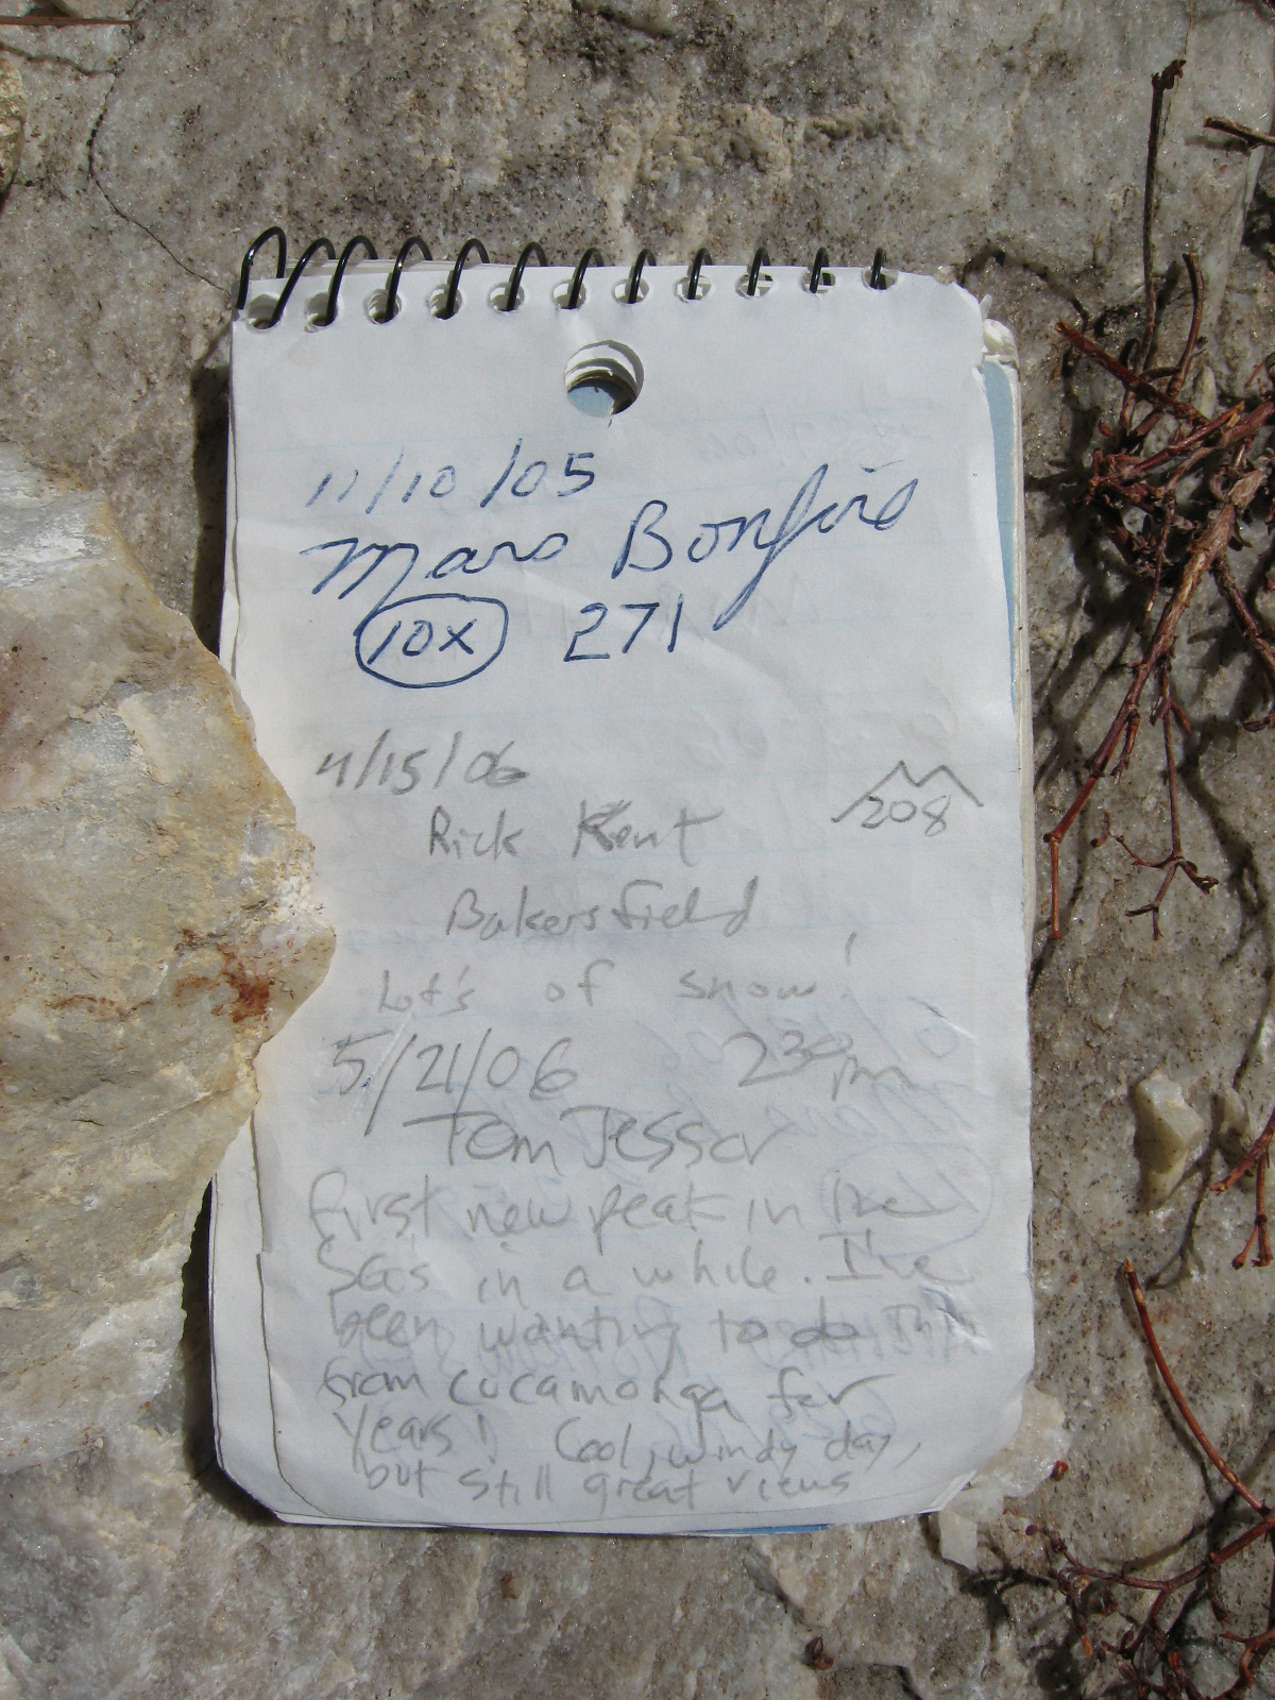 11/10/05
Mars Bonfire
10x 271
4/15/06
208
Rick Kent
Bakersfield
Lot's of snow!
5/21/06 230 pm
Tom Jessor
first new peak in the
SG's in a while. I've
been wanting to do this
from cucamonga for
years! Cool, windy day,
but still great views